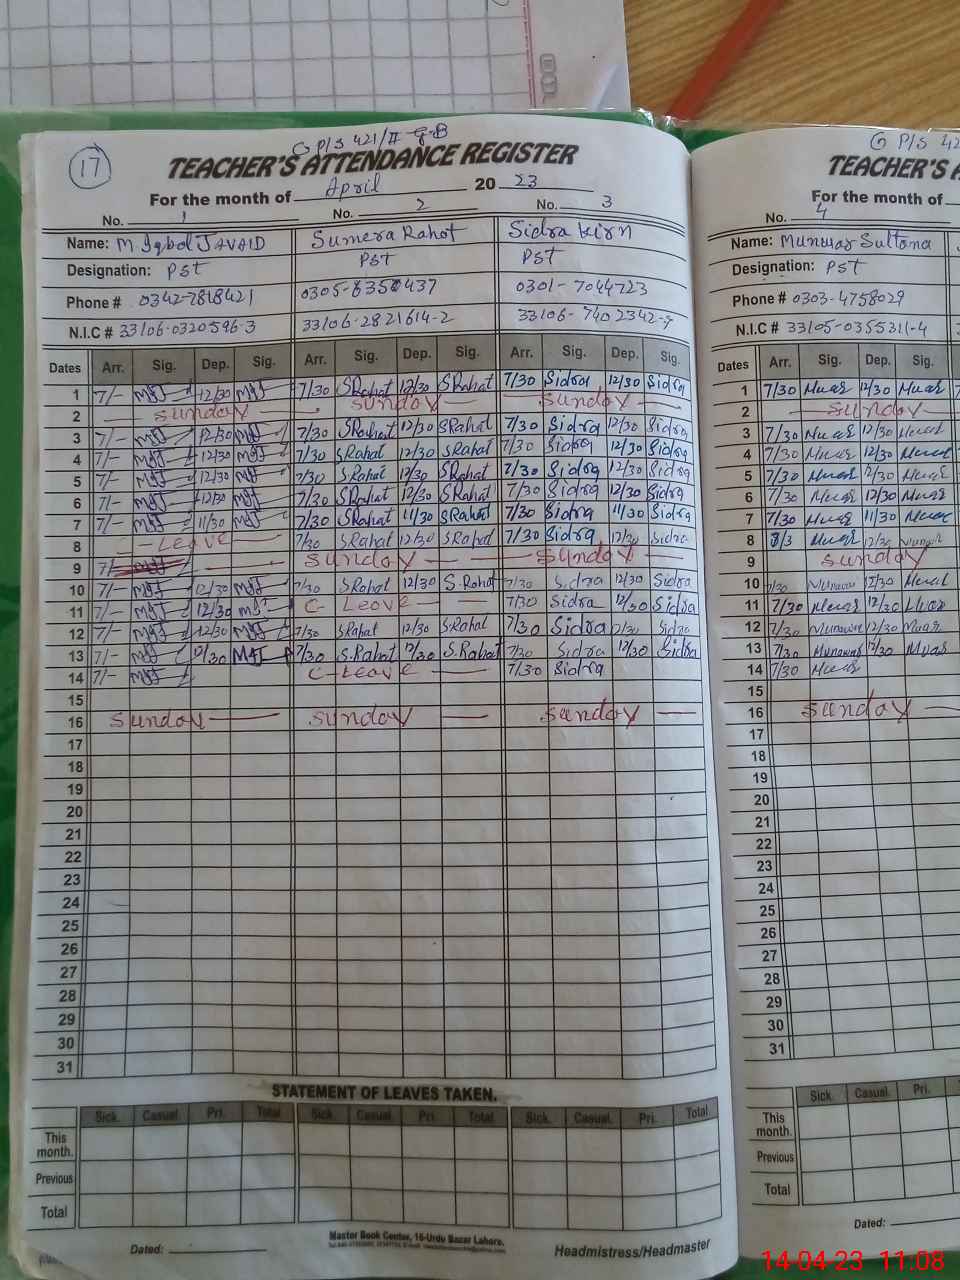 G P/S 421/II G-B
17
TEACHER'S ATTENDANCE REGISTER
For the month of April 2023
No. 1 No. 2 No. 3
Name: M Iqbal JAVAID Sumera Rahat Sidra kirn
Designation: PST PST PST
Phone # 0342-7818421 0305-6350437 0301-7044723
N.I.C # 33106-0320596-3 33106-2821614-2 33106-7402342-9
Dates Arr. Sig. Dep. Sig. Arr. Sig. Dep. Sig. Arr. Sig. Dep. Sig.
1 7/- MJJ 12/30 MJJ 7/30 SRahat 12/30 SRahat 7/30 Sidra 12/30 Sidra
2 Sunday Sunday Sunday
3 7/- MJJ 12/30 MJJ 7/30 SRahat 12/30 SRahat 7/30 Sidra 12/30 Sidra
4 7/- MJJ 12/30 MJJ 7/30 SRahat 12/30 SRahat 7/30 Sidra 12/30 Sidra
5 7/- MJJ 12/30 MJJ 7/30 SRahat 12/30 SRahat 7/30 Sidra 12/30 Sidra
6 7/- MJJ 12/30 MJJ 7/30 SRahat 12/30 SRahat 7/30 Sidra 12/30 Sidra
7 7/- MJJ 11/30 MJJ 7/30 SRahat 11/30 SRahat 7/30 Sidra 11/30 Sidra
8 Leave 7/30 SRahat 12/30 SRahat 7/30 Sidra 12/30 Sidra
9 7/- Sunday Sunday
10 7/- MJJ 12/30 MJJ 7/30 SRahat 12/30 S.Rahat 7/30 Sidra 12/30 Sidra
11 7/- MJJ 12/30 MJJ C- Leave 7/30 Sidra 12/30 Sidra
12 7/- MJJ 12/30 MJJ 7/30 SRahat 12/30 S.Rahat 7/30 Sidra 12/30 Sidra
13 7/- MJJ 12/30 MJJ 7/30 S.Rahat 12/30 S.Rahat 7/30 Sidra 12/30 Sidra
14 7/- MJJ C-Leave 7/30 Sidra
15
16 Sunday Sunday Sunday
17
18
19
20
21
22
23
24
25
26
27
28
29
30
31
STATEMENT OF LEAVES TAKEN.
Sick. Casual. Pri. Total Sick. Casual. Pri. Total Sick. Casual. Pri. Total
This month.
Previous
Total
Dated:
Master Book Center, 16-Urdu Bazar Lahore.
Headmistress/Headmaster
G P/S 42
TEACHER'S A
For the month of
No. 4
Name: Munwar Sultana
Designation: PST
Phone # 0303-4758029
N.I.C # 33105-0355311-4
Dates Arr. Sig. Dep. Sig.
1 7/30 Muar 12/30 Muar
2 Sunday
3 7/30 Muar 12/30 Muar
4 7/30 Muar 12/30 Muar
5 7/30 Muar 12/30 Muar
6 7/30 Muar 12/30 Muar
7 7/30 Muar 11/30 Muar
8 8/3 Muar 12/30 Munwar
9 Sunday
10 7/30 Munawar 12/30 Muar
11 7/30 Muar 12/30 Muar
12 7/30 Munawar 12/30 Muar
13 7/30 Munawar 12/30 Muar
14 7/30 Muar
15
16 Sunday
17
18
19
20
21
22
23
24
25
26
27
28
29
30
31
Sick. Casual. Pri.
This month.
Previous
Total
Dated:
14-04-23 11:08